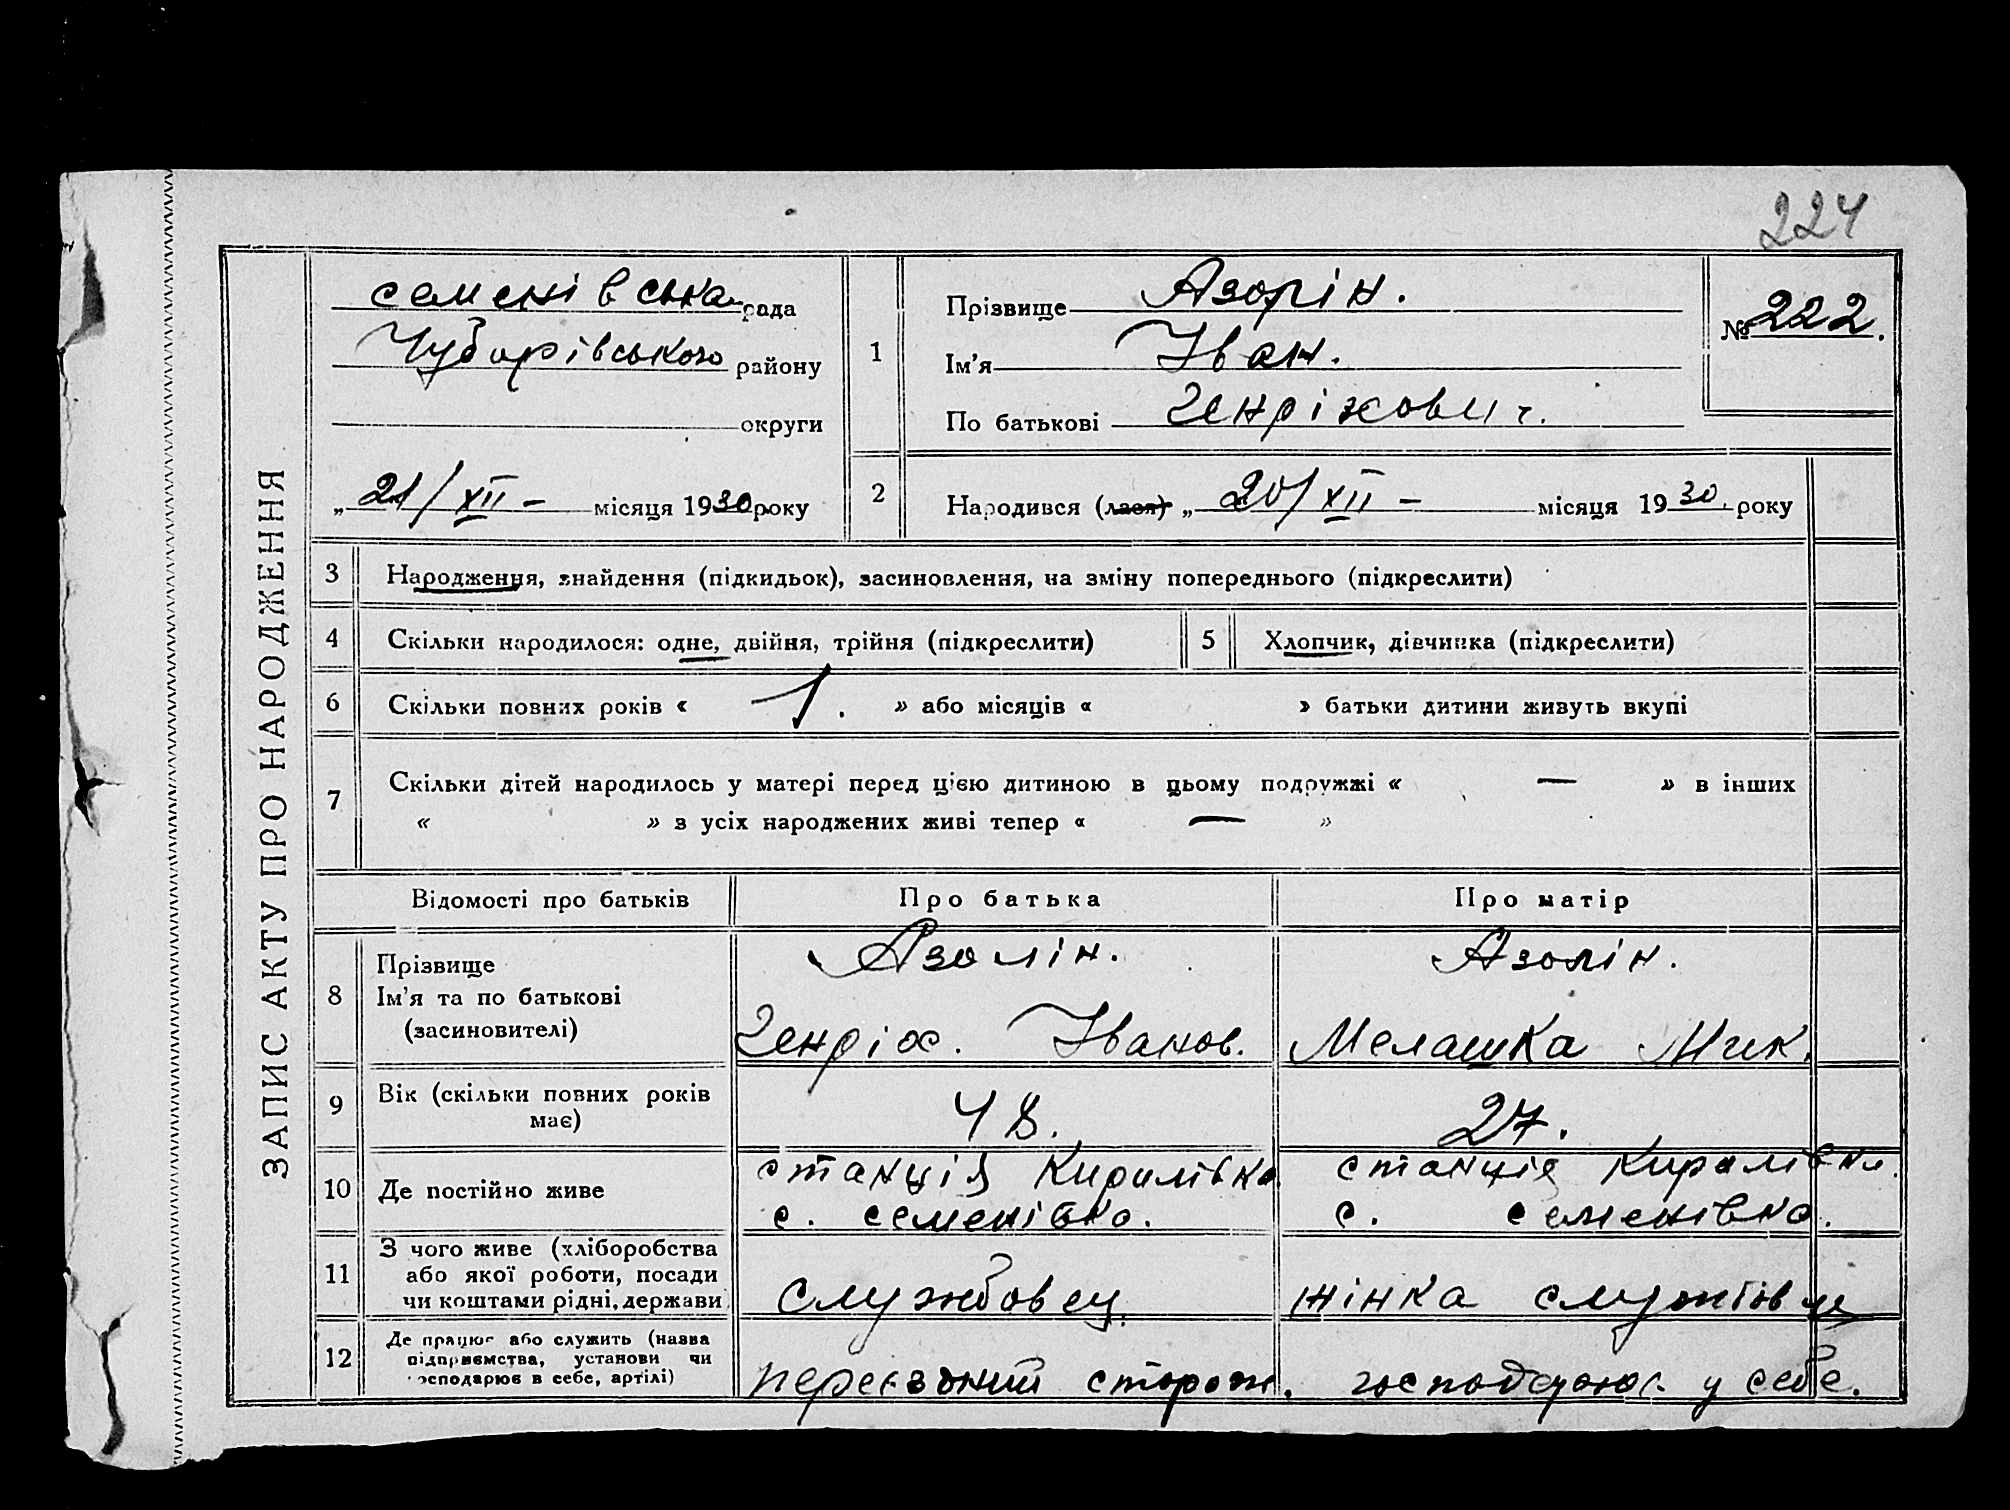 224
ЗАПИС АКТУ ПРО НАРОДЖЕННЯ
семенівська рада
Чубарівського району
округи
„ 21/XII – місяця 1930 року
1
Прізвище Азорін.
Ім'я Іван.
По батькові Генріхович.
№ 222.
2
Народився (лася) „ 20/XII – місяця 1930 року
3 Народження, знайдення (підкидьок), засиновлення, на зміну попереднього (підкреслити)
4 Скільки народилося: одне, двійня, трійня (підкреслити)
5 Хлопчик, дівчинка (підкреслити)
6 Скільки повних років « 1. » або місяців « » батьки дитини живуть вкупі
7 Скільки дітей народилось у матері перед цією дитиною в цьому подружжі « — » в інших
« » з усіх народжених живі тепер « — »
Відомості про батьків Про батька Про матір
8 Прізвище
Ім'я та по батькові
(засиновителі)
Азолін.
Генріх. Іванов.
Азолін.
Мелашка Мик.
9 Вік (скільки повних років
має)
48.
27.
10 Де постійно живе
станція Кирилівка
с. семенівка.
станція Кирилівка.
с. семенівка.
11 З чого живе (хліборобства
або якої роботи, посади
чи коштами рідні, держави
службовец.
жінка службовця
12 Де працює або служить (назва
підприємства, установи чи
господарює в себе, артілі)
переєздний сторож.
господарює у себе.